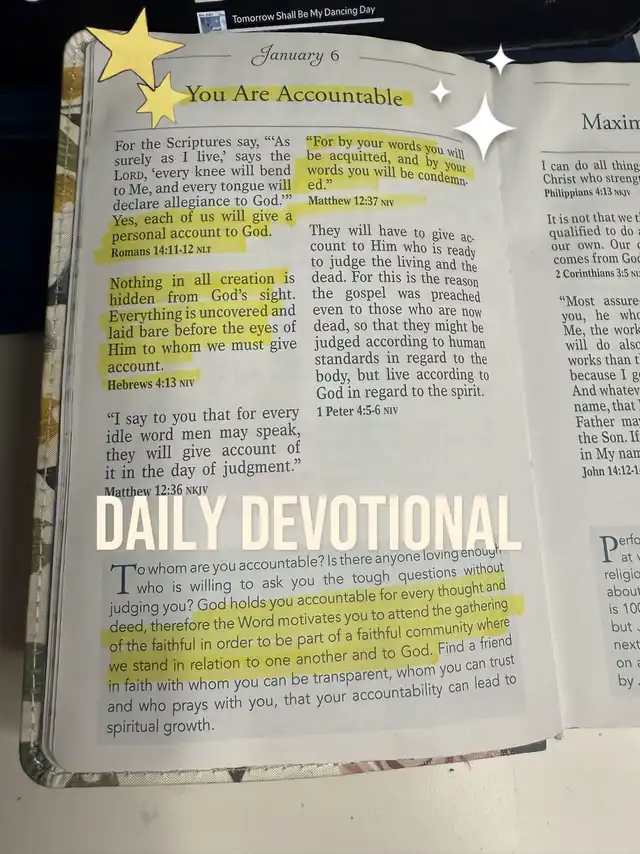 Tomorrow Shall Be My Dancing Day
January 6
You Are Accountable
For the Scriptures say, “‘As
surely as I live,’ says the
LORD, ‘every knee will bend
to Me, and every tongue will
declare allegiance to God.’”
Yes, each of us will give a
personal account to God.
Romans 14:11-12 NLT
Nothing in all creation is
hidden from God’s sight.
Everything is uncovered and
laid bare before the eyes of
Him to whom we must give
account.
Hebrews 4:13 NIV
“I say to you that for every
idle word men may speak,
they will give account of
it in the day of judgment.”
Matthew 12:36 NKJV
“For by your words you will
be acquitted, and by your
words you will be condemn-
ed.”
Matthew 12:37 NIV
They will have to give ac-
count to Him who is ready
to judge the living and the
dead. For this is the reason
the gospel was preached
even to those who are now
dead, so that they might be
judged according to human
standards in regard to the
body, but live according to
God in regard to the spirit.
1 Peter 4:5-6 NIV
DAILY DEVOTIONAL
To whom are you accountable? Is there anyone loving enough
who is willing to ask you the tough questions without
judging you? God holds you accountable for every thought and
deed, therefore the Word motivates you to attend the gathering
of the faithful in order to be part of a faithful community where
we stand in relation to one another and to God. Find a friend
in faith with whom you can be transparent, whom you can trust
and who prays with you, that your accountability can lead to
spiritual growth.
Maxim
I can do all thing
Christ who streng
Philippians 4:13 NKJV
It is not that we t
qualified to do a
our own. Our c
comes from God
2 Corinthians 3:5 NL
“Most assure
you, he who
Me, the work
will do also
works than t
because I g
And whatev
name, that
Father ma
the Son. If
in My nam
John 14:12-1
Perfo
at v
religio
about
is 100
but
next
on a
by